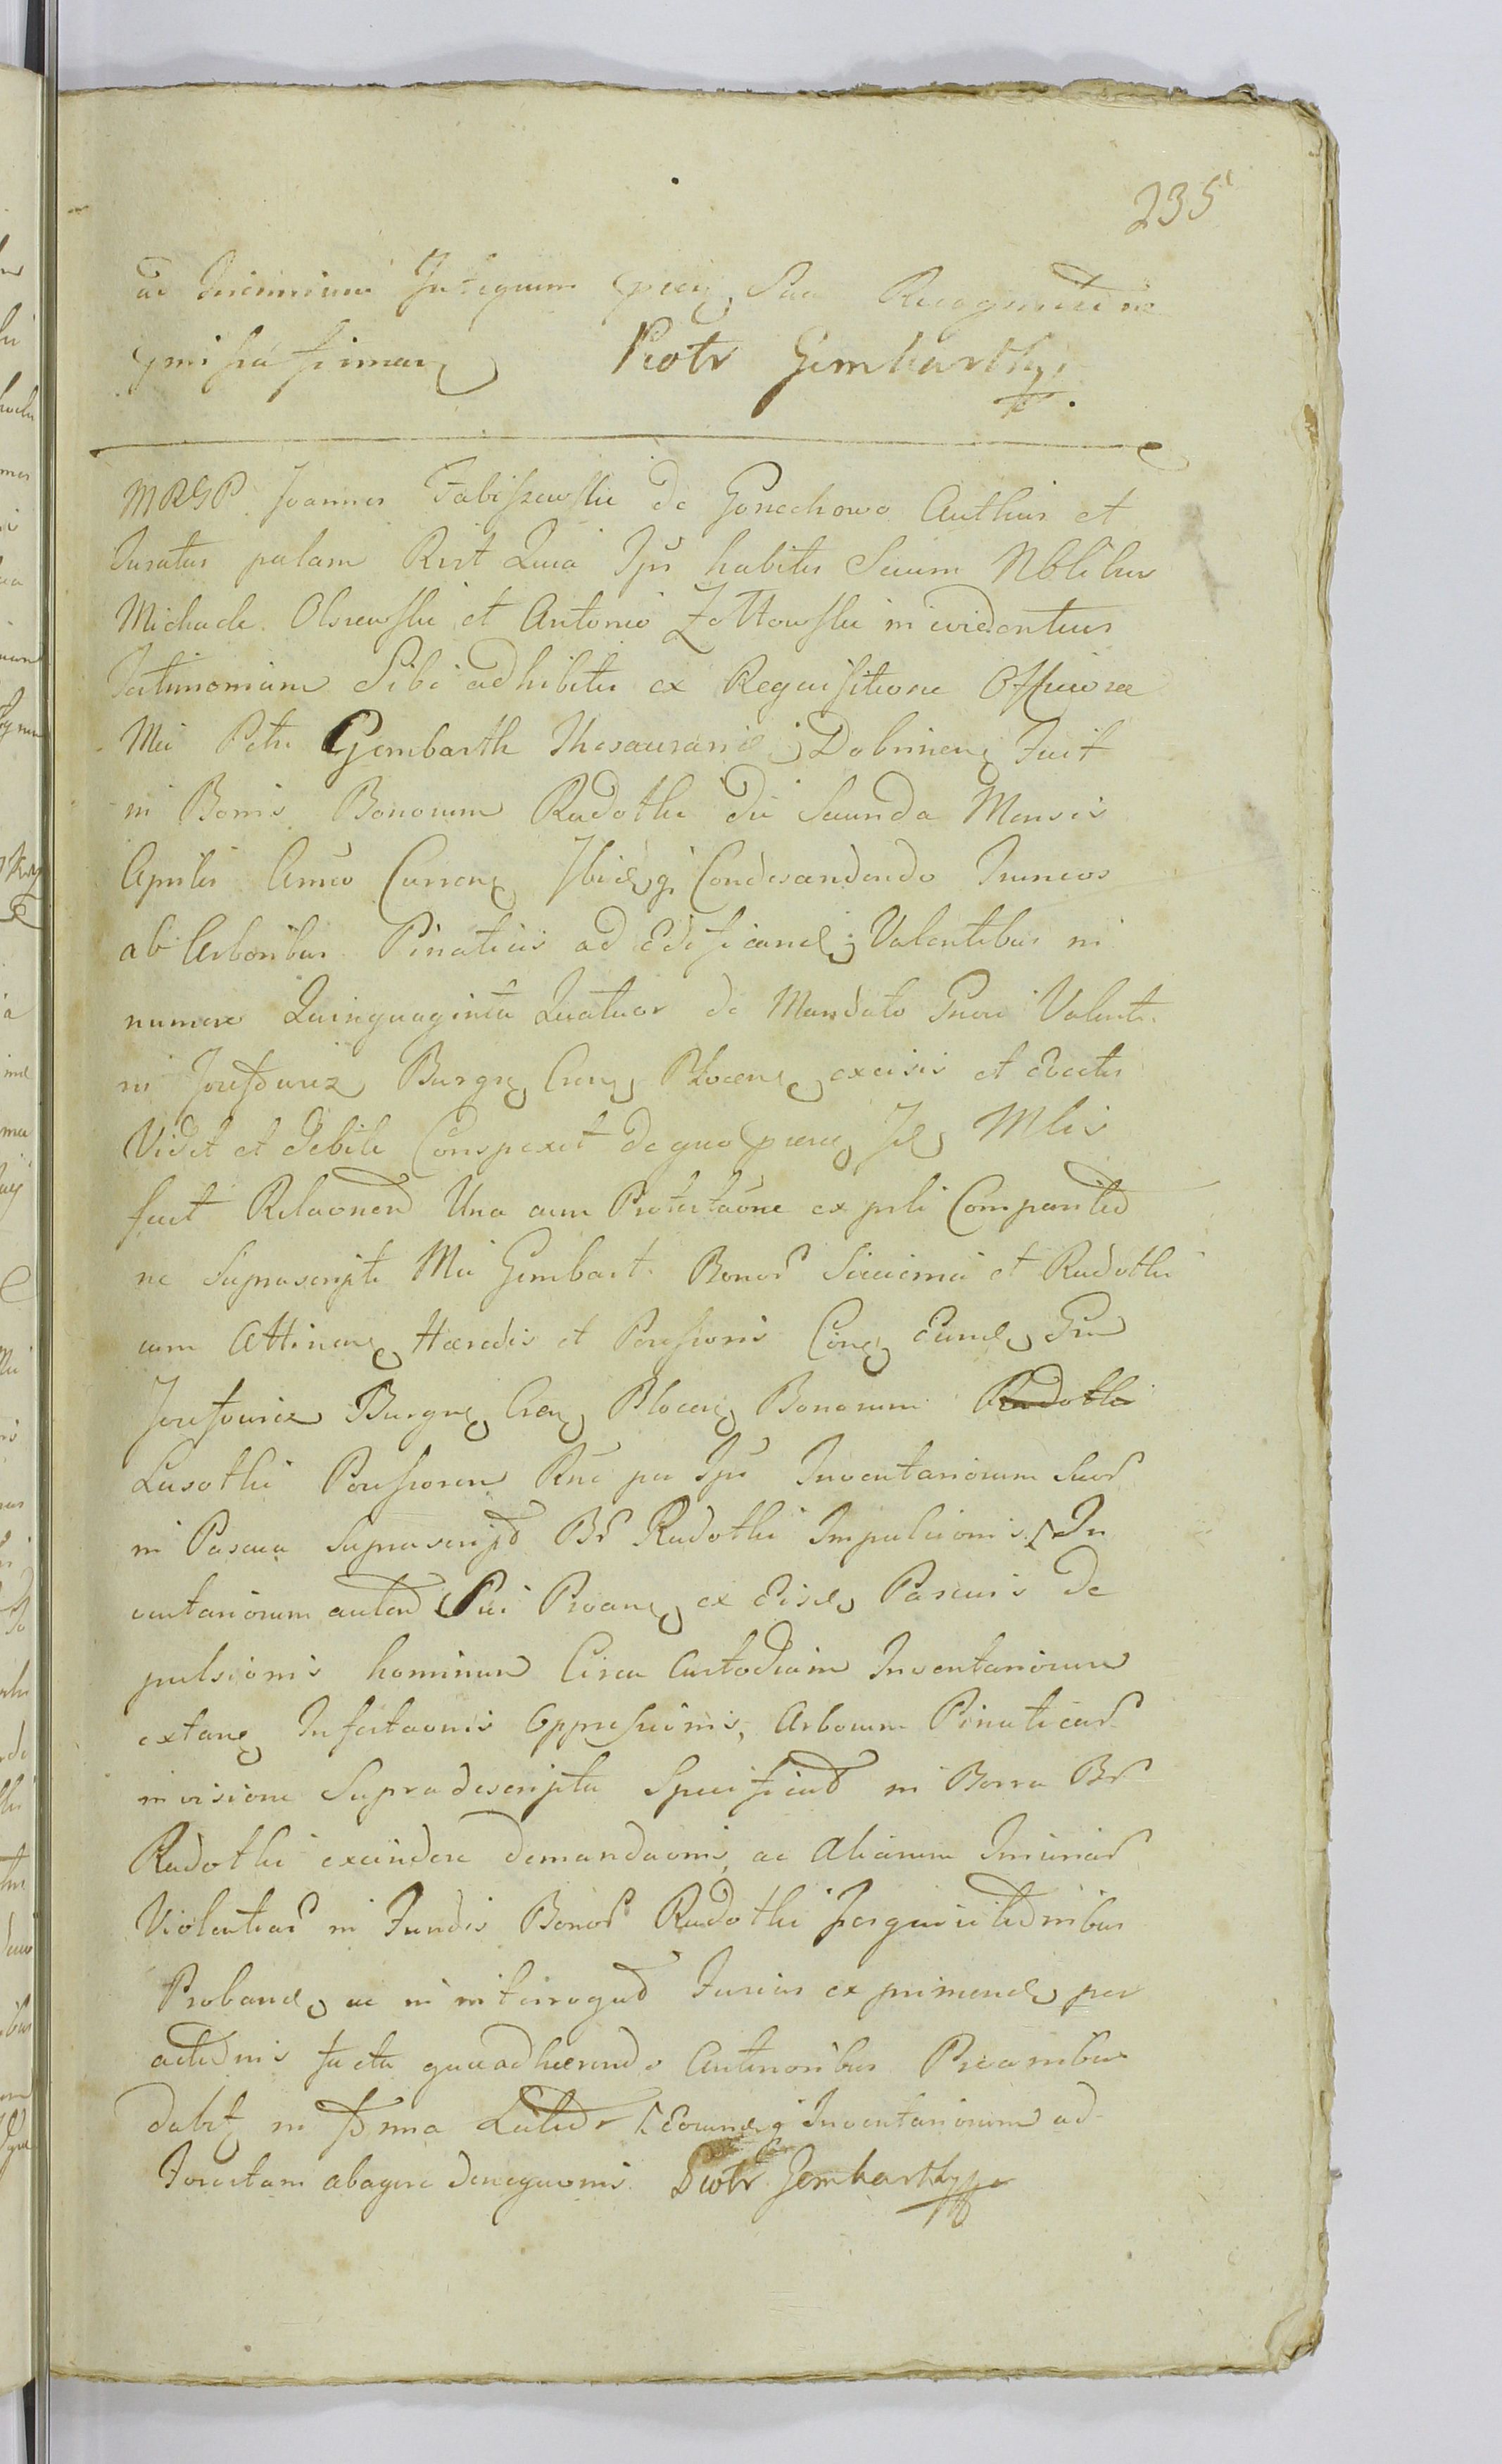 235
ac Triennium Integrum
Piotr Gembarth
MRGP Joannes Fabiszewski de Gonechowo Authus et
Juratus palam Rwt Quia Ips habitis Secum Nblibus
Michaele Olszewski et Antonio Zottowski in evidentius
Testimonium Sibi adhibitis ex Requisitione Officiosa
Mci Petri Gembarth Thesaurarii Dobrinen Fuit
in Bonis Bonorum Radotki die Secunda Mensis
Aprilis Anno Curren Ibidq Condescendendo Truncos
ab Arboribus Pinaticis ad Edificand Valentibus in
numero Quinquaginta Quatuor de Mandato Gnosi Valenti
ni Jozefowicz Burgr Cren Plocen excisis et Evectis
Vidit et debite Conspexit de quo Id Mlis
fecit Relaonem Una cum Protestaone ex prti Comparitio
ne Suprascripti Mci Gembart Bonor et Radotki
cum Attinen Haeredis et Possoris Cong Eund Gm
Jozefowicz Burgr Cren Plocen Bonorum Radotki
Lasotki Possorem Rne per Ips Inventariorum Suor
in Pascua Suprascript Br Radotki Impulsionis In
ventariorum autem Sui Proang ex Eisd Pascuis de
pulsionis hominum Circa Custodiam Inventariorum
extang Infestaonis Oppressionis, Arborum Pinaticar
in visione Supradescripta Specificat in Borra Br
Radotki excindere demandaonis, ac Aliarum Iniuriar
Violentiar in Fundis Bonor Radotki
Proband, ac in interrogat Iurius exprimend per
facta Antenoribus
dabt in Eorundq Inventariorum ad
abagere denegaonis. Piotr Gembarth